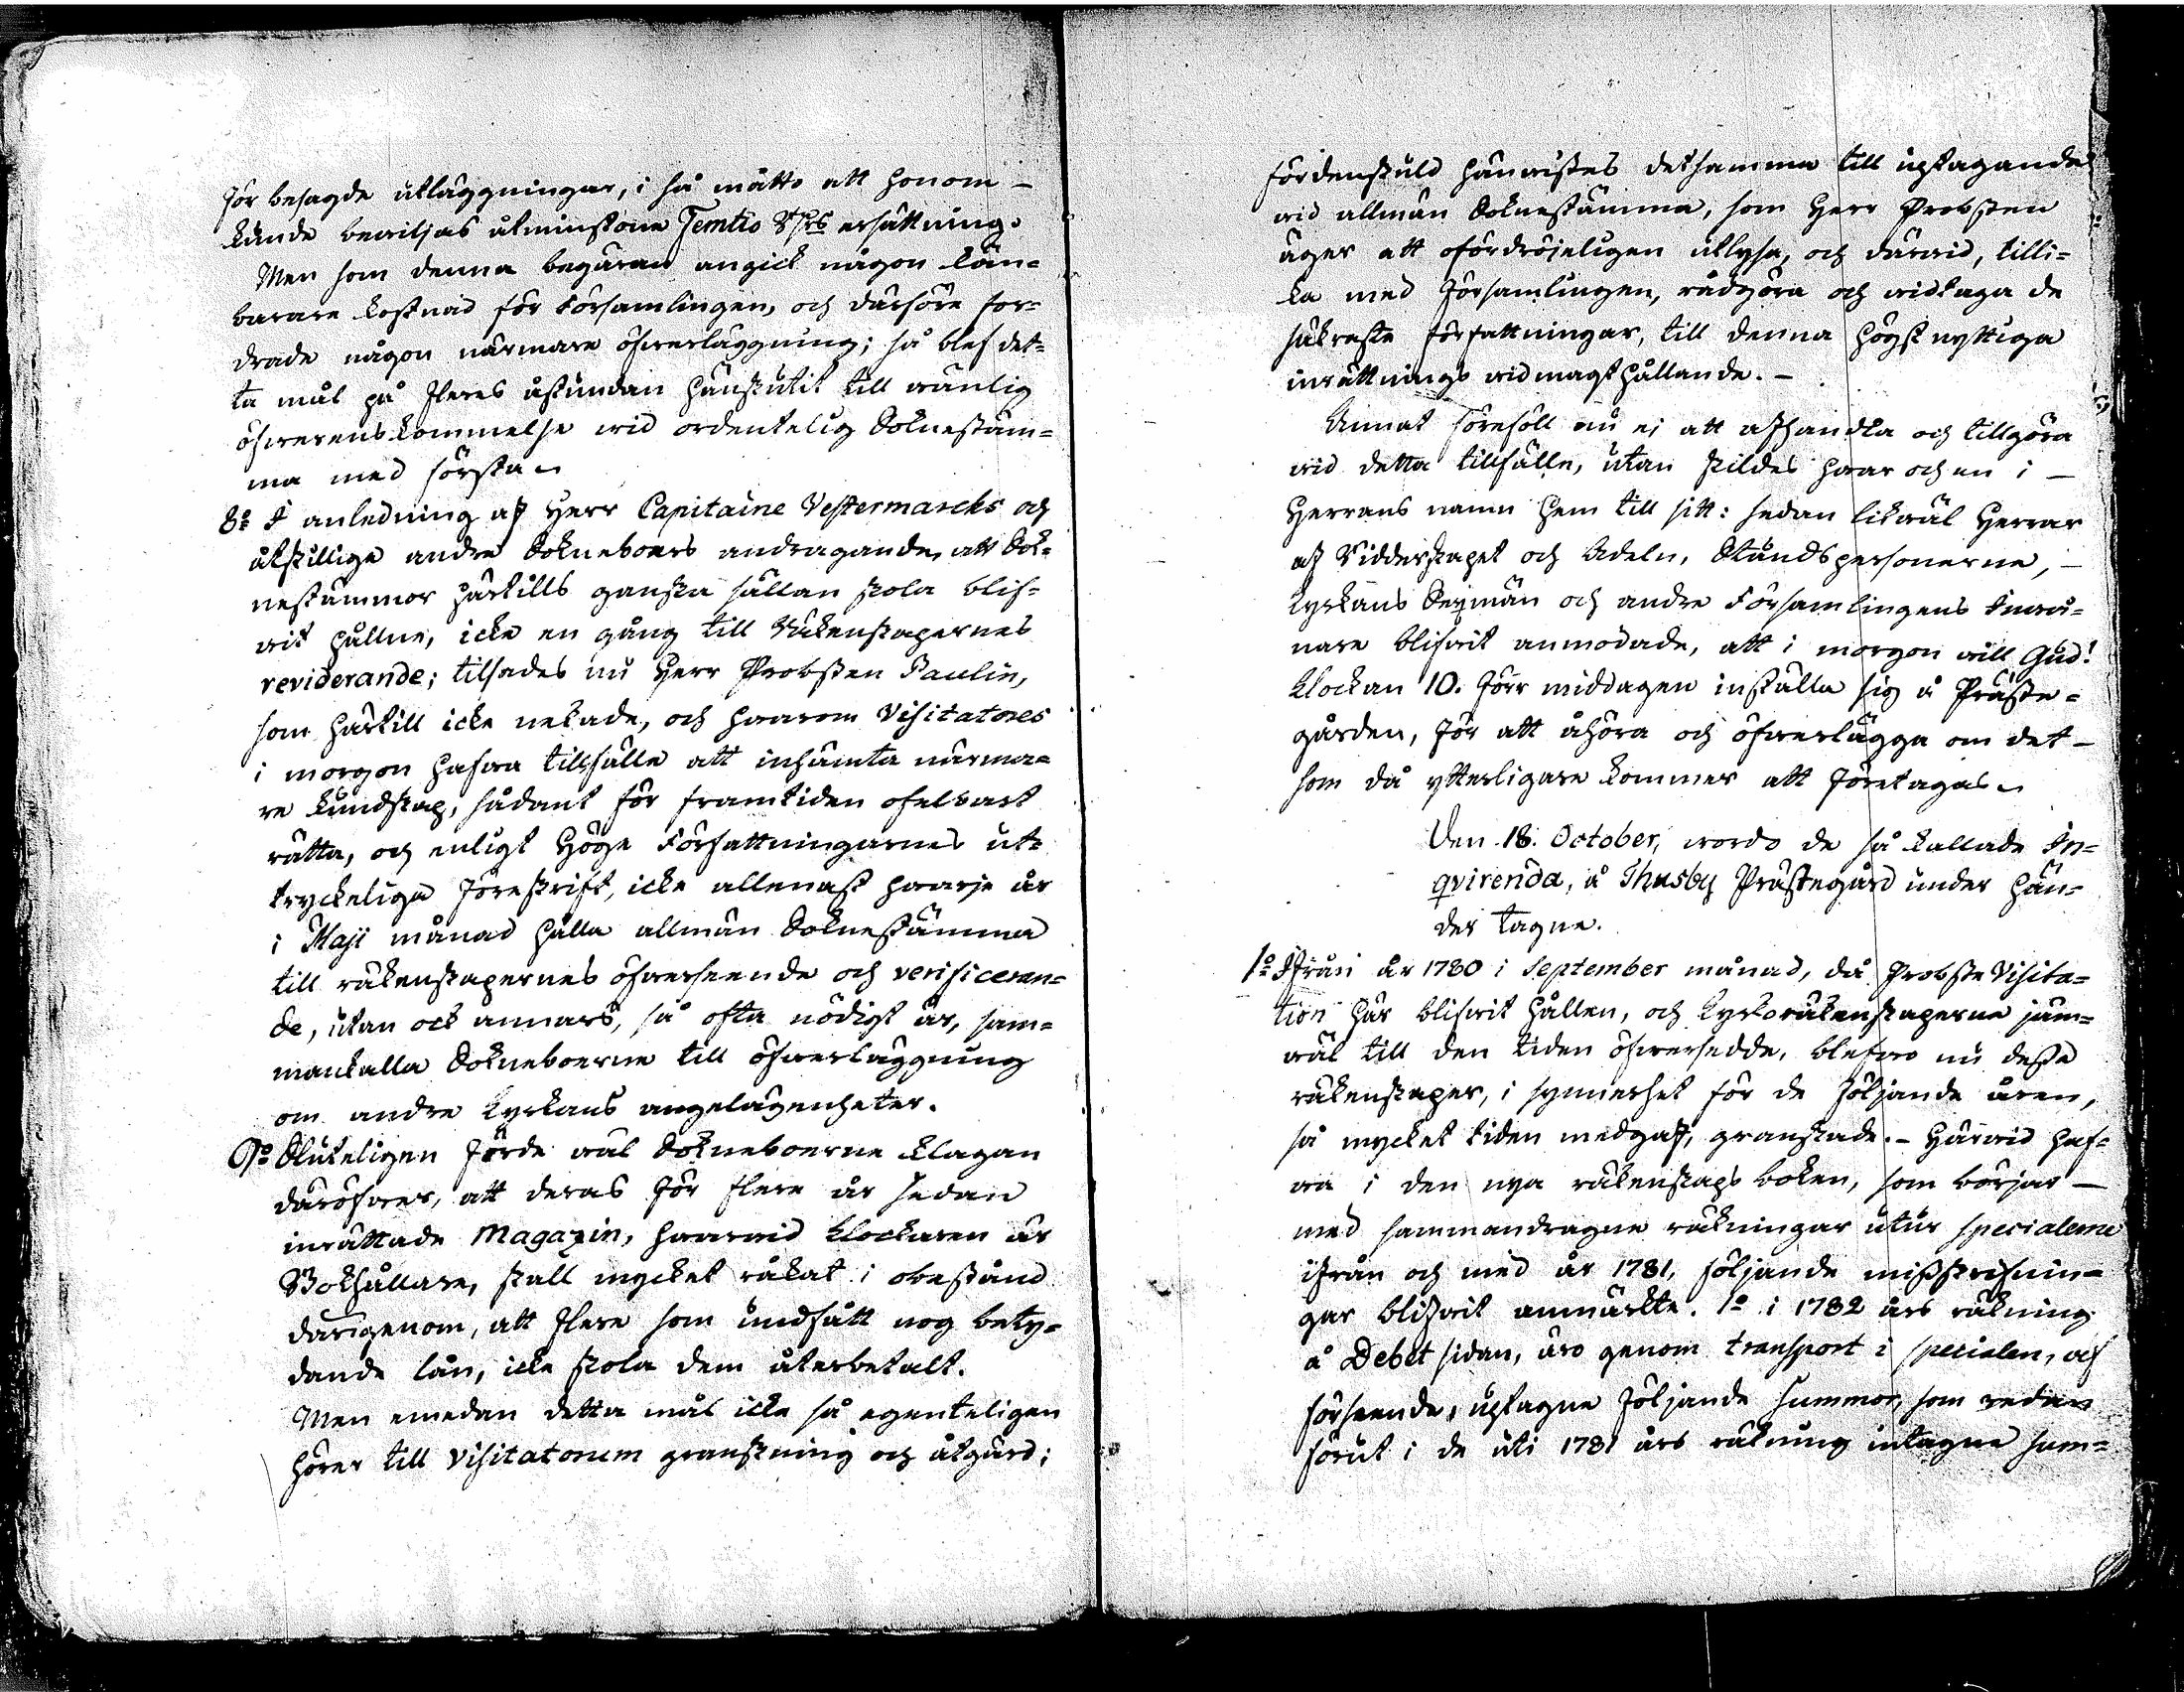 för besagde utläggningar, i så måtto att honom –
kunde beviljas åtminstone Femtio Rdrs ersättning.
Men som denna begäran angick någon kän-
barare kostnad för Församlingen, och därföre for-
drade någon närmare öfwerläggning; så blef det-
ta mål på fleres åstundan hänskutit till wänlig
öfwerenskommelse wid ordentelig Soknestäm-
ma med första.
8:o I anledning af Herr Capitaine Vestermarcks och
åtskillige andre Sokneboers andragande, att Sok-
nestämmor härtills ganska sällan skola blif-
wit hållne, icke en gång till Räkenskapernes
reviderande; tilsades nu Herr Probsten Paulin,
som härtill icke nekade, och hwarom Visitatores
i morgon hafwa tillfälle att inhämta närma-
re kundskap, sådant för framtiden ofelbart
rätta, och enligt Höge Författningarnes ut-
tryckeliga föreskrift, icke allenast hwarje år
i Maji månad hålla allmän Soknestämma
till räkenskapernes öfwerseende och verificeran-
de, utan ock annars, så ofta nödigt är, sam-
mankalla Sokneboerne till öfwerläggning
om andre Kyrkans angelägenheter.
9:o Sluteligen förde wäl Sokneboerne klagan
däröfwer, att deras för flere år sedan
inrättade Magazin, hwarwid Klockaren är
Bokhållare, skall mycket råkat i obestånd
därigenom, att flere som undfått nog bety-
dande lån, icke skola dem återbetalt.
Men emedan detta mål icke så egenteligen
hörer till Visitatorum granskning och åtgärd;
fördenskuld hänwistes detsamma till uptagande
wid allmän Soknestämma, som Herr Probsten
äger att ofördröjeligen utlysa, och därwid, tilli-
ka med Församlingen, rådgöra och widtaga de
säkraste författningar, till denna högst nyttiga
inrättnings widmagthållande. –
Annat föreföll nu ej att afhandla och tillgöra
wid detta tillfälle, utan skildes hwar och en i –
Herrans namn hem till sitt: sedan likwäl Herrar
af Ridderskapet och Adeln, Ståndspersonerne, –
Kyrkans Sexmän och andre Församlingens Inwå-
nare blifwit anmodade, att i morgon will Gud!
Klockan 10. förr middagen inställa sig å Präste-
gården, för att åhöra och öfwerlägga om det –
som då ytterligare kommer att företagas.
Den 18. October, wordo de så kallade In-
qvirenda, å Thusby Prästegård under hän-
der tagne.
1:o Ifrån år 1780 i September månad, då Probste Visita-
tion här blifwit hållen, och Kyrkoräkenskaperne jäm-
wäl till den tiden öfwersedde, blefwo nu desse
räkenskaper, i synnerhet för de följande åren,
så mycket tiden medgaf, granskade. – Härwid haf-
wa i den nya räkenskaps boken, som börjar –
med sammandragne räkningar utur specialerne
ifrån och med år 1781, följande misskrifnin-
gar blifwit anmärkte. 1:o i 1782 års räkning
å Debet sidan, äro genom transport i specialen, af
förseende, uptagne följande summor, som redan
förut i de uti 1781 års räkning intagne sum-